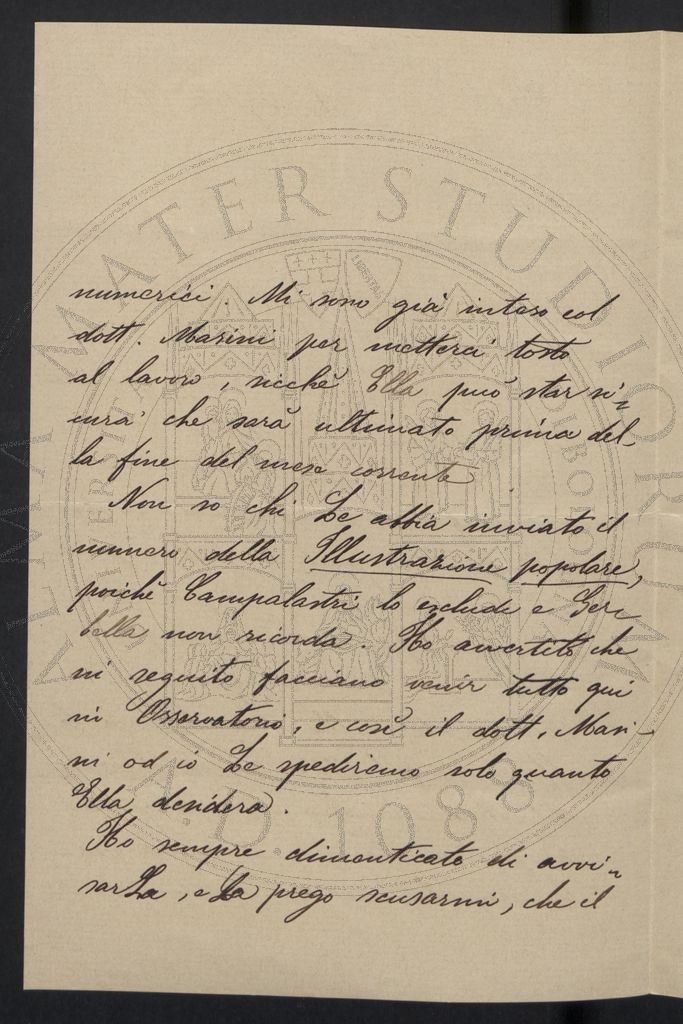 numerici. Mi sono già inteso col
dott. Masini per metterci tosto
al lavoro, sicchè Ella può star si-
cura che sarà ultimato prima del-
la fine del mese corrente
Non so chi Le abbia inviato il
numero della Illustrazione popolare,
poichè Campalastri lo esclude e Ger-
bella non ricorda. Ho avvertito che
in seguito facciano venir tutto qui
in Osservatorio, e così il dott. Masi-
ni od io Le spediremo solo quanto
Ella desidera.
Ho sempre dimenticato di avvi-
sarLa, e La prego scusarmi, che il
ALMA MATER STUDIORUM
A.D. 1088